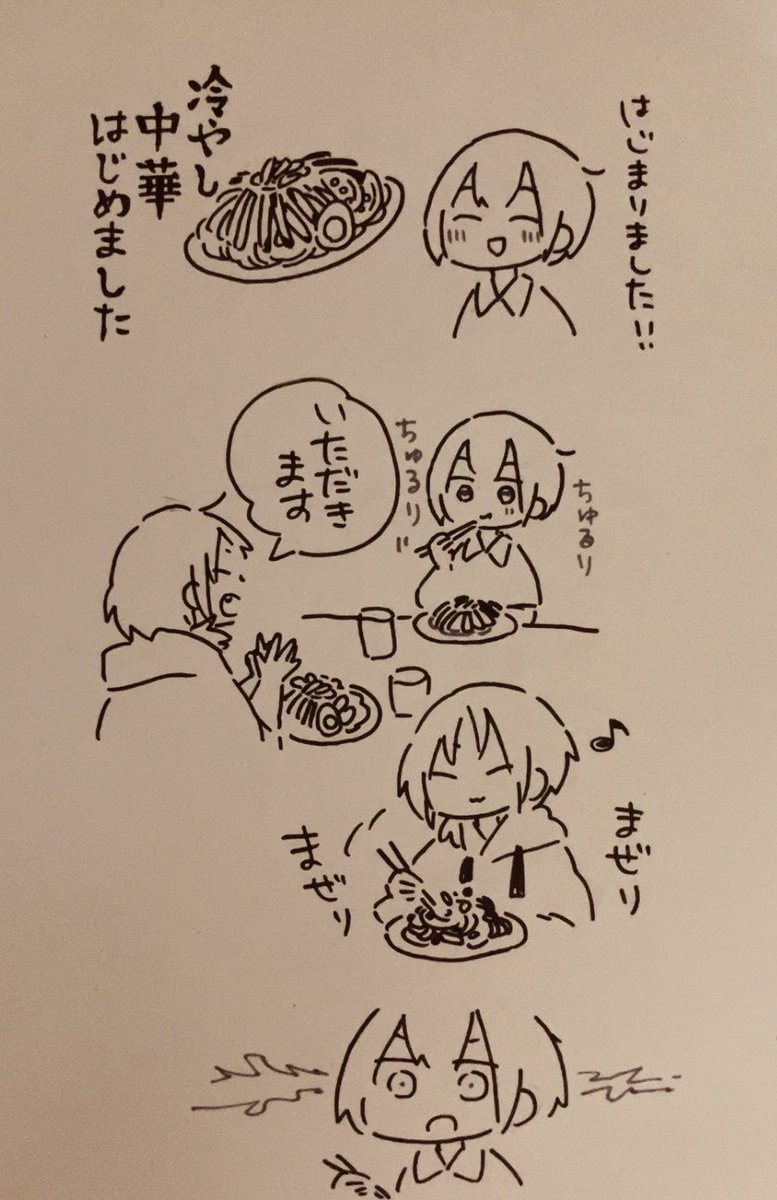 はじまりました!!
冷やし
中華
はじめました
ちゅるり
ちゅるり
いただき
ます
まぜり
まぜり